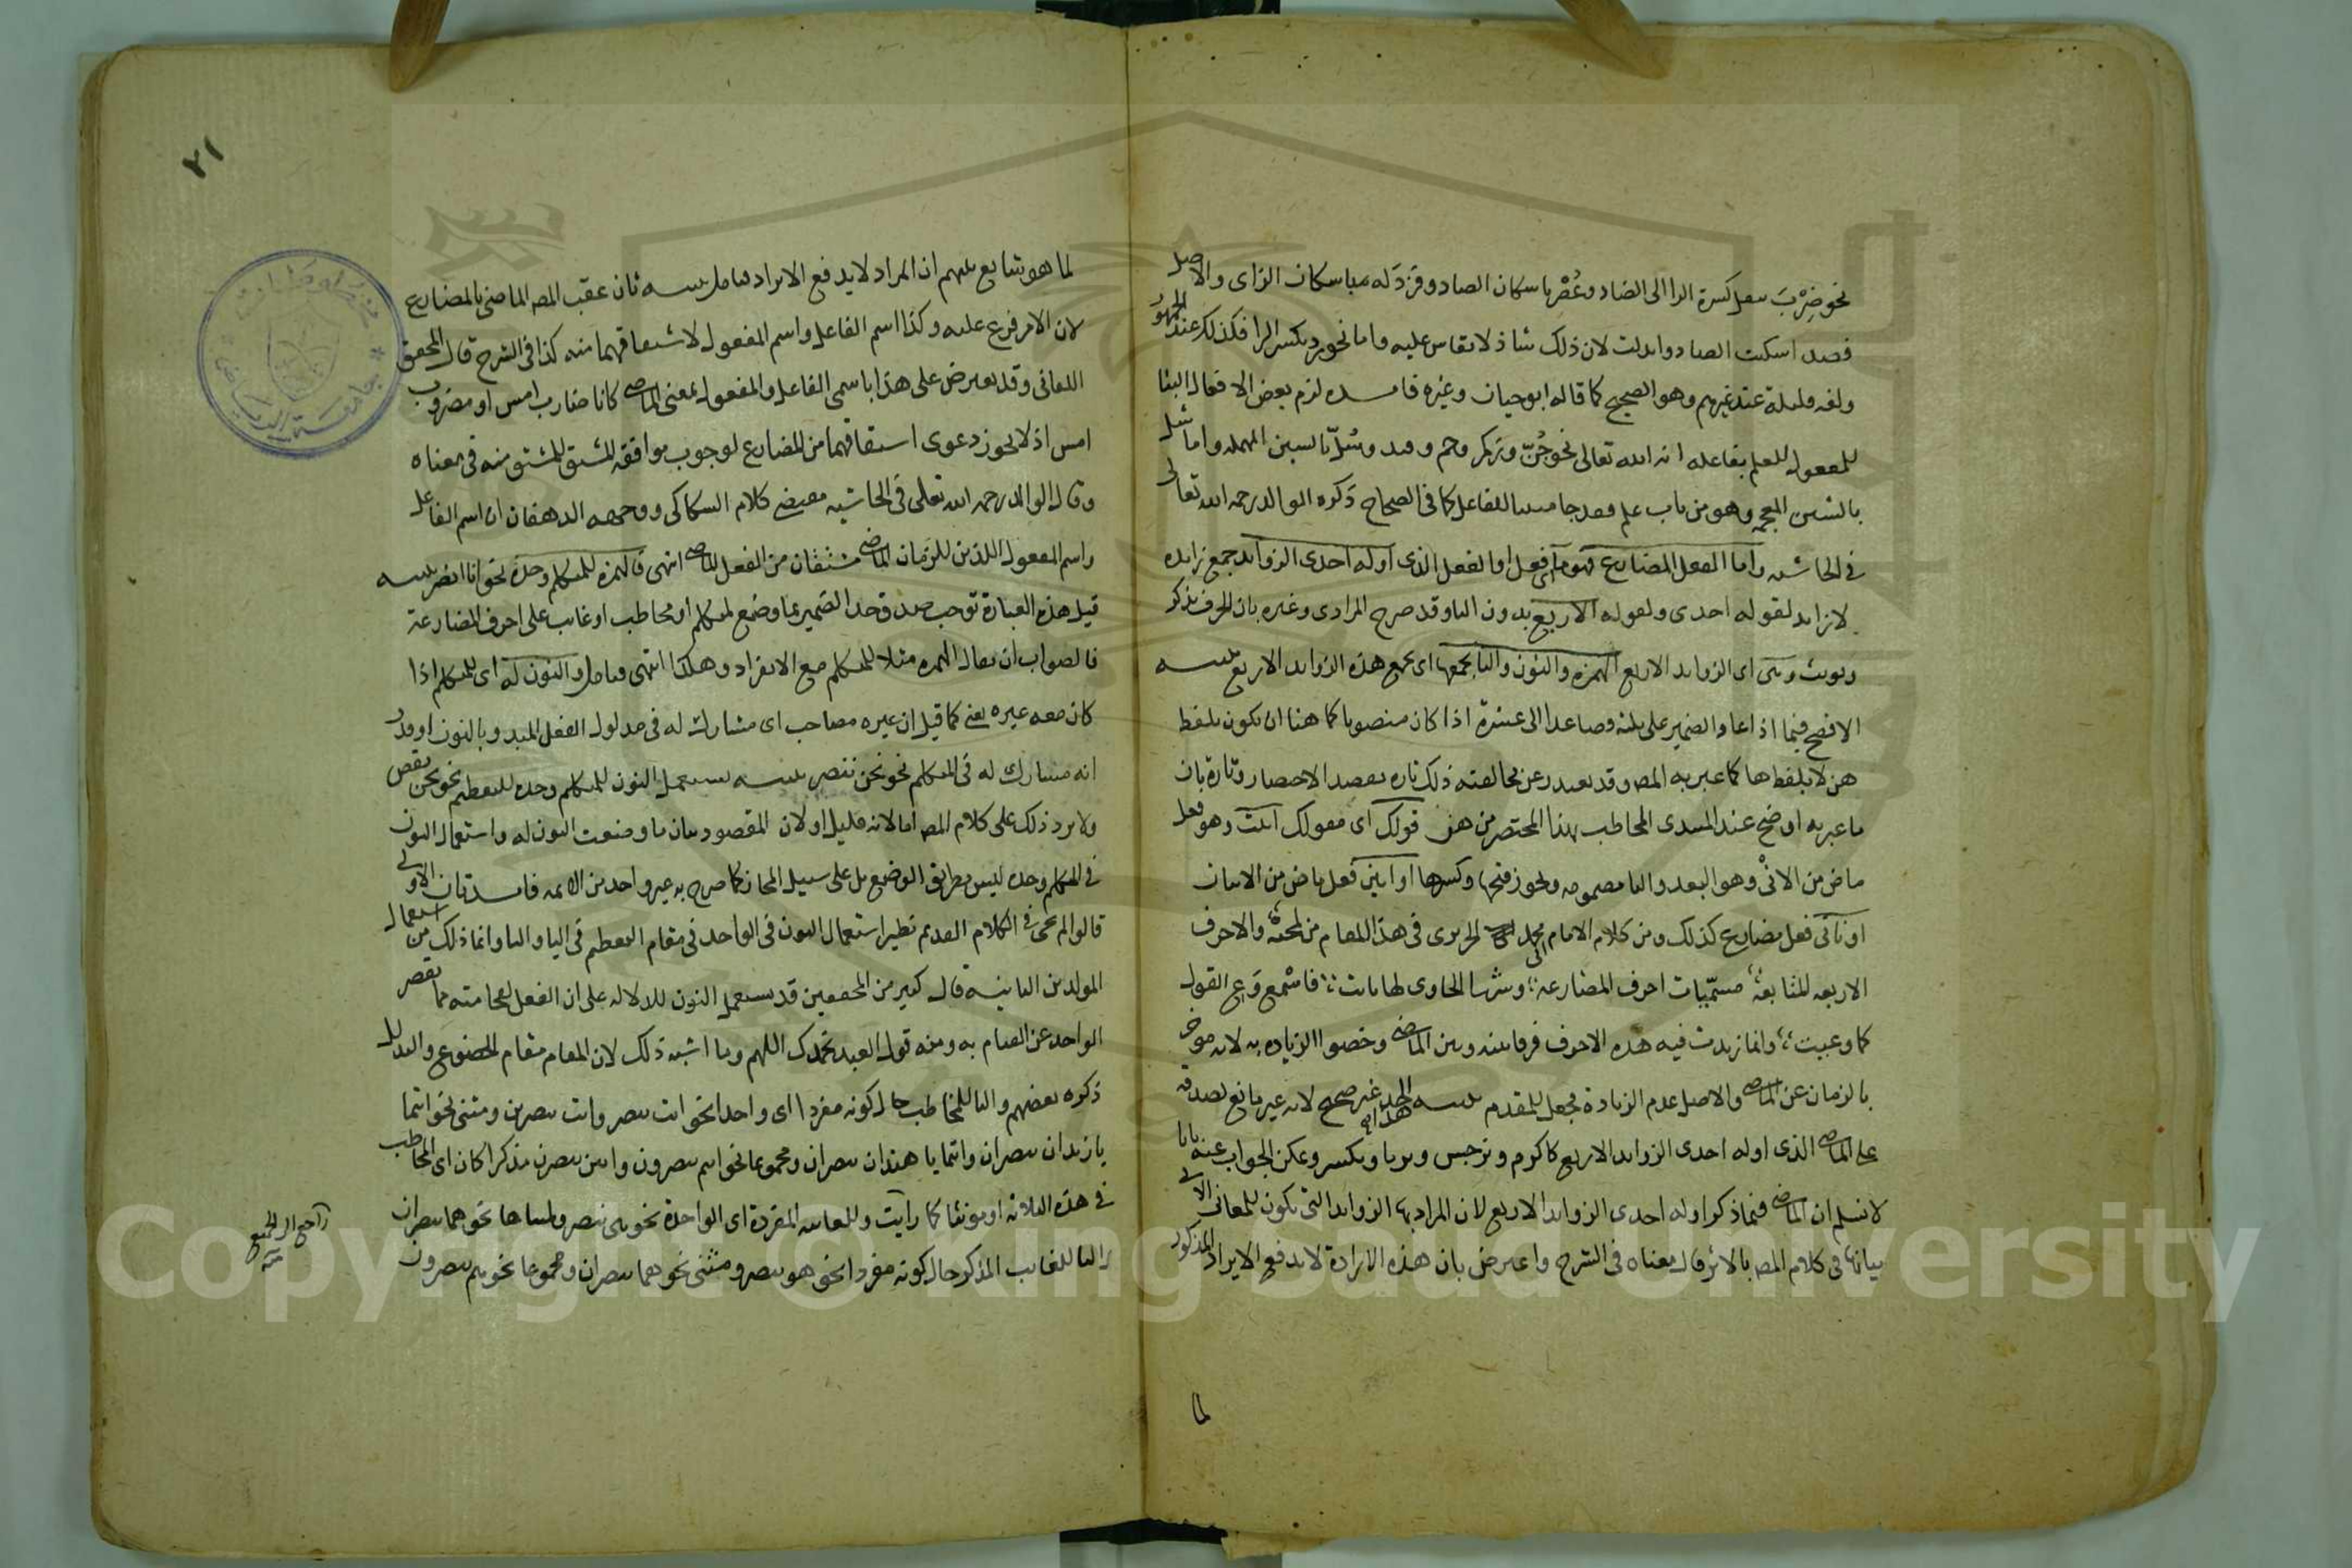 نحو ضِرْبَ بنقل كسرة الرا الى الضاد وعُصْر باسكان الصاد وفزد له مباسكان الزاى والاصل
فصد اسكنت الصاد وابدلت لان ذلك شاذ لا يقاس عليه واما نحو رد بكسر الرا فكذلك عند الجمهور
ولغه قليلة عند غيرهم وهو الصحيح كما قاله ابو حيان وغيره فايده لزم بعض الافعال البنا
للمفعول للعلم بفاعله انه الله تعالى نحو جُنّ وزكم وحم وسُلّ بالسين المهمله واما شل
بالشين المعجمه وهو من باب علم فقد جا مبنيا للفاعل كما فى الصحاح ذكره الوالد رحمه الله تعالى
فى الحاشيه واما الفعل المضارع فهو ما اى فعل او الفعل الذى اوله احدى الزوايد جمع زايده
لا زايد لقوله احدى ولقوله الاربع بدون التا وقد صرح المرادى وغيره بان الحرف يذكر
ويونث وهى اى الزوايد الاربع الهمزه والنون والتا يجمعها اى يجمع هذه الزوايد الاربع تنبيه
الافصح فيما اذا عاد الضمير على ثلثه وصاعدا الى عشرة اذا كان منصوبا كما هنا ان يكون بلفظ
هن لا بلفظ ها كما عبر به المص وقد يعتذر عن مخالفته ذلك تاره بقصد الاختصار وتارة بان
ما عبر به اوضح عند المبتدى المخاطب بهذا المختصر من هن قولك اى مقولك انيت وهو فعل
ماض من الانى وهو البعد والتا مضمومه ويجوز فتحها وكسرها او اتين فعل ماض من الاتيان
او ناتى فعل مضارع كذلك ومن كلام الامام محمد الحريرى فى هذا المقام من لمحته والاحرف
الاربعه المتابعه مسمّيات احرف المضارعه وسمتها الحاوى لها نايت فاسْمع وَعِ القول
كما وعيت وانما زيدت فيه هذه الاحرف فرقا بينه وبين الماضى وخصوا الزياده به لانه موخر
بالزمان عن الماضى والاصل عدم الزيادة فجعل للمقدم تنبيه هذا الحد غير صحيح لانه غير مانع لصدقه
على الماضى الذى اوله احدى الزوايد الاربع كاكرم ونرجس ويرنا وتكسر ويمكن الجواب عنه بانا
لا نسلم ان الماضى فيما ذكر اوله احدى الزوايد الاربع لان المراد بها الزوايد التى تكون للمعانى الاتى
بيانها فى كلام المص بالاثر قال معناه فى الشرح واعترض بان هذه الارادة لا تدفع الايراد المذكور
لما
٢١
لما هو شايع بينهم ان المراد لا يدفع الايراد فتامل تنبيه ثان عقب المص الماضى بالمضارع
لان الامر فرع عليه وكذا اسم الفاعل واسم المفعول لاشتقاقهما منه كذا فى الشرح قال المحقق
اللقانى وقد يعترض على هذا باسمى الفاعل والمفعول بمعنى الماضى كانا ضارب امس او مضروب
امس اذ لا يجوز دعوى اشتقاقهما من المضارع لوجوب موافقة المشتق للمشتق منه فى معناه
وقال الوالد رحمه الله تعالى فى الحاشيه مقتضى كلام السكاكى ووجهه الدهقان ان اسم الفاعل
واسم المفعول اللذين للزمان الماضى مشتقان من الفعل الماضى انتهى فالهمزه للمتكلم وحده نحو انا انصر تنبيه
قيل هذه العبارة توجب صدق حد الضمير بما وضع لمتكلم او مخاطب او غايب على احرف المضارعة
فالصواب ان يقال الهمزه مثلا للمتكلم مع الانفراد وهكذا انتهى فتامل والنون له اى للمتكلم اذا
كان معه غيره يعنى كما قيل ان غيره مصاحب اى مشارك له فى مدلول الفعل المبدو بالنون او قدر
انه مشارك له فى المتكلم نحو نحن ننصر تنبيه يستعمل النون للمتكلم وحده للتعظيم نحو نحن نقص
ولا يرد ذلك على كلام المص اما لانه قليل او لان المقصود بيان ما وضعت النون له واستعمال النون
فى المتكلم وحده ليس بطريق الوضع بل على سبيل المجاز كما صرح به غير واحد من الائمه فايدتان الاولى
قالوا لم يجى فى الكلام القديم نظير استعمال النون فى الواحد فى مقام التعظيم فى اليا والتا وانما ذلك من استعمال
المولدين الثانيه قال كثير من المحققين قد يستعمل النون للدلاله على ان الفعل لفخامته مما يقصر
الواحد عن القيام به ومنه قول العبد نحمدك اللهم وما اشبه ذلك لان المقام مقام الخضوع والتذلل
ذكره بعضهم والتا للمخاطب حال كونه مفردا اى واحدا نحو انت تنصر وانت تنصرين ومثنى نحو انتما
يا زيدان تنصران وانتما يا هندان تنصران ومجموعا نحو انتم تنصرون وانتن تنصرن مذكرا كان اى المخاطب
فى هذه الثلاثه او مونثا كما رايت وللغايبه المفردة اى الواحدة نحو هى تنصر ولمثناها نحو هما تنصران
واليا للغايب المذكر حال كونه مفردا نحو هو ينصر ومثنى نحو هما ينصران ومجموعا نحو هم ينصرون
راجع الى الجميع
Copyright © King Saud University